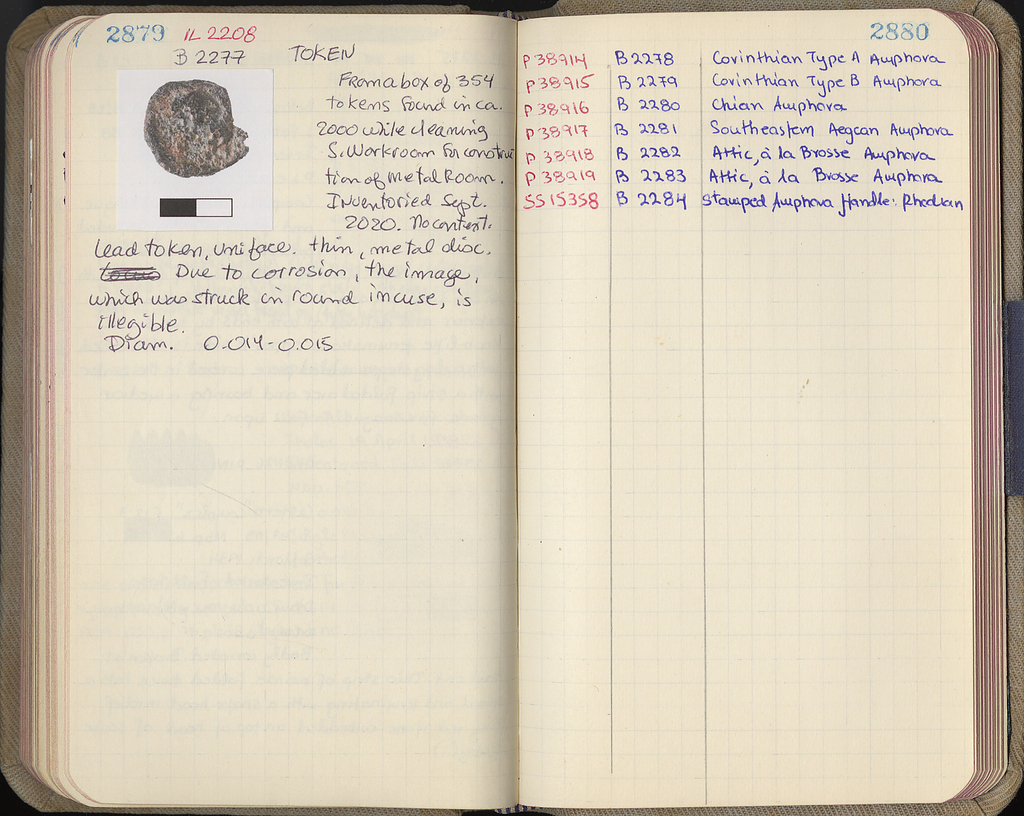 2879 IL 2208
B 2277 TOKEN
From a box of 354
tokens found in ca.
2000 wile cleaning
S. Workroom for construc
tion of Metal Room.
Inventoried Sept.
2020. No context.
Lead token, uniface. thin, metal disc.
Due to corrosion, the image,
which was struck in round incuse, is
illegible.
Diam. 0.014-0.015
2880
P 38914 B 2278 Corinthian Type A Amphora
P 38915 B 2279 Corinthian Type B Amphora
P 38916 B 2280 Chian Amphora
P 38917 B 2281 Southeastern Aegean Amphora
P 38918 B 2282 Attic, à la Brosse Amphora
P 38919 B 2283 Attic, à la Brosse Amphora
SS 15358 B 2284 Stamped Amphora Handle: Rhodian